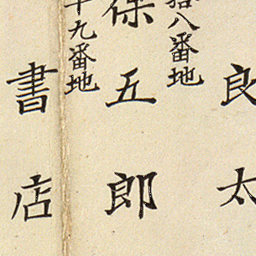 良太
拾八番地
保五郎
十九番地
書店